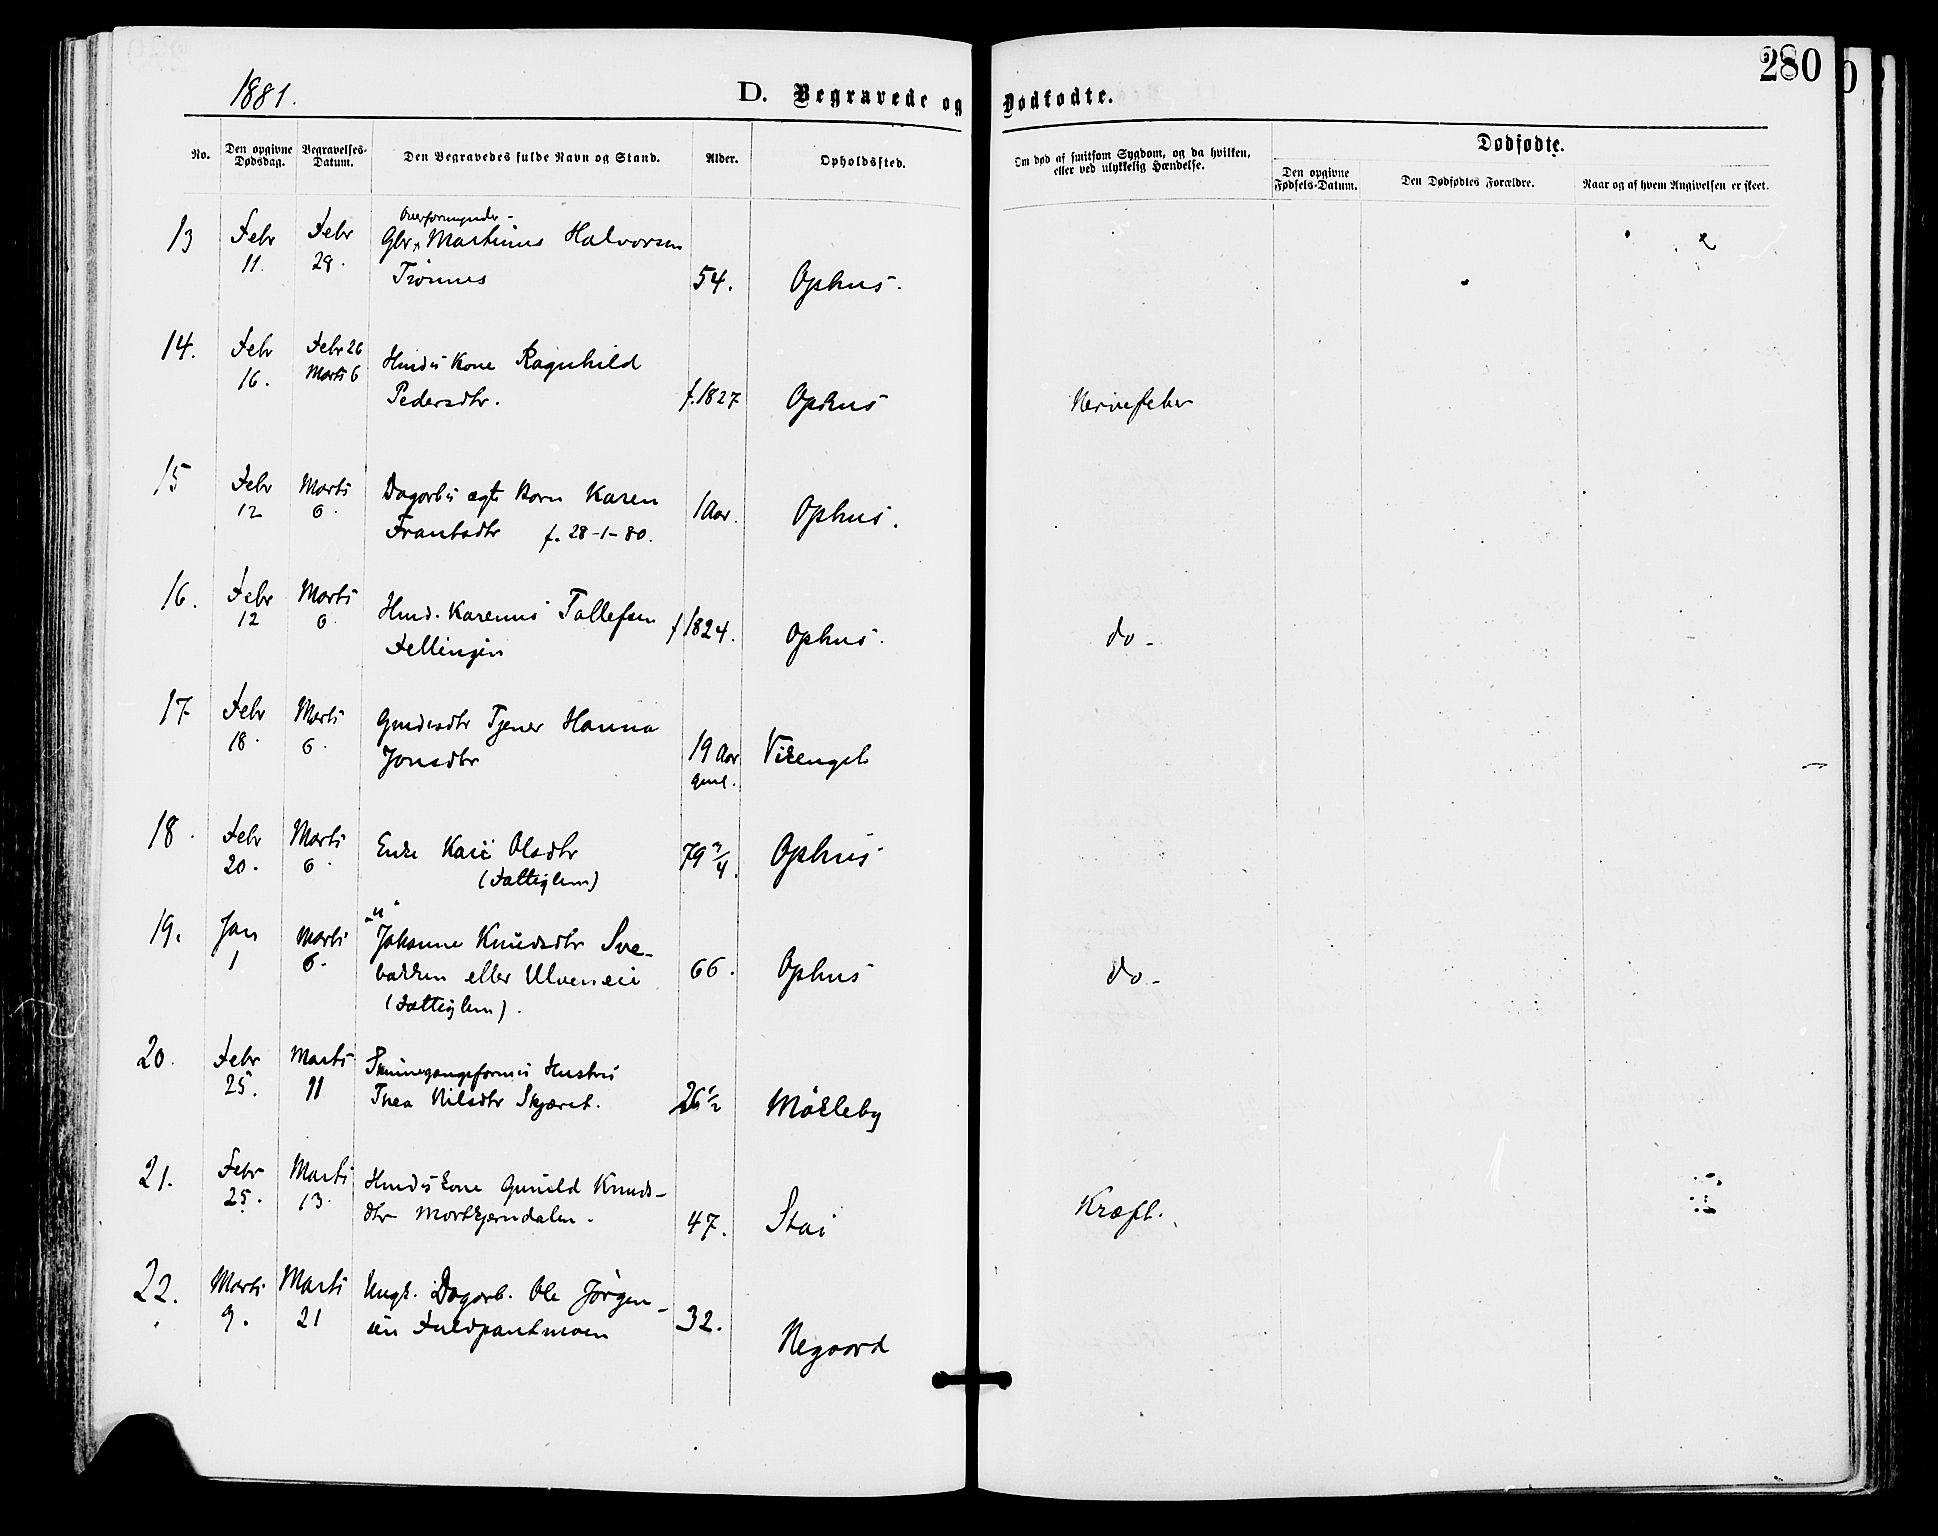 280
1881.
D. Begravede og Dødfødte.
No.
Den opgivne Dødsdag.
Begravelses-Datum.
Den Begravedes fulde Navn og Stand.
Alder.
Opholdssted.
Om død af smitsom Sygdom, og da hvilken,
eller ved ulykkelig Hændelse.
Dødfødte.
Den opgivne Fødsels-Datum.
Den Dødfødtes Forældre.
Naar og af hvem Angivelsen er skeet.
Overformynder-
13 Febr Febr Gbr. Martinus Halvorsen
11. 29. Trønnes 54. Ophus.
14. Febr Febr 26 Hmds Kone Ragnhild
16. Marts 6 Pedersdtr. f. 1827 Ophus Nervefeber
15 Febr Marts Dagarbs ægte Barn Karen
12 6. Frantsdtr f. 28-1-80. 1 Aar. Ophus.
16. Febr Marts Hmd. Karenus Tollefsen
12 6. Fellingen f 1824. Ophus. do-
17 Febr Marts Gmdsdtr Tjener Hanna
18. 6. Jonsdtr 19 Aar Virenget
gml.
18. Febr Marts Enke Kari Olsdtr
20. 6. (Fattiglem) 79 3/4. Ophus
19. Jan Marts "u" Johanne Knudsdtr Sve-
1 6. bakken eller Ulveneie 66. Ophus do-
(Fattiglem).
20. Febr Marts Skinnegangsformds Hustru
25. 11 Thea Nilsdtr Skjæret. 26 1/2 Mökleby
21. Febr Marts Hmds kone Gunild Knuds-
25. 13. dtr Morktjerndalen. 47. Stai Kræft.
22. Marts Marts Ungk. Dagarb. Ole Jørgen-
9. 21 sen 32. Negaard